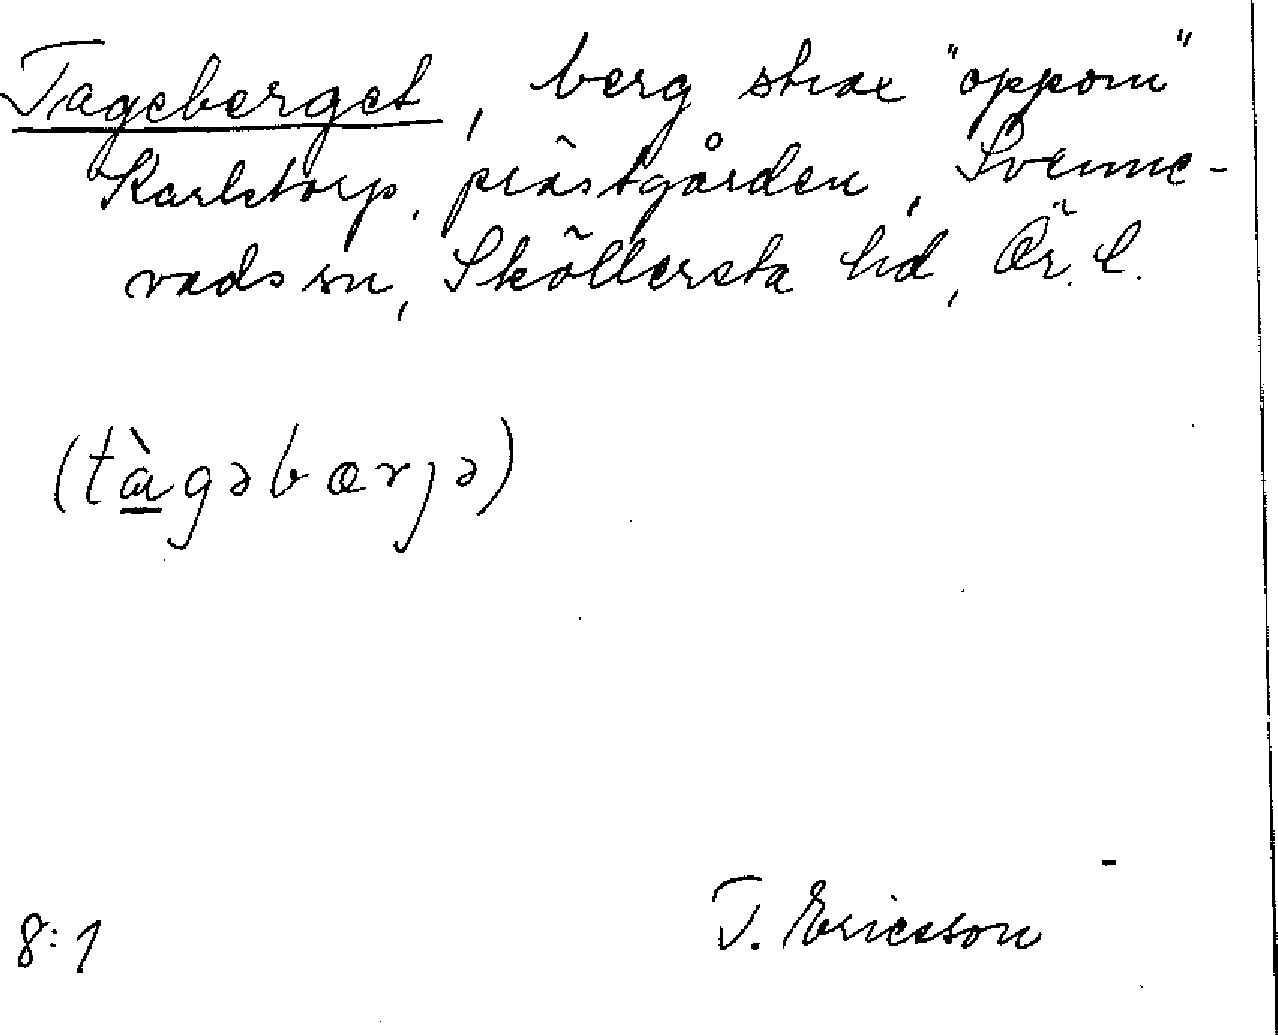 Tageberget, berg strax "oppom"
Karlstorp, prästgården, Svenne-
vads sn, Sköllersta hd, Ör. l.
(tàgəbærjə)
T. Ericsson
8:1